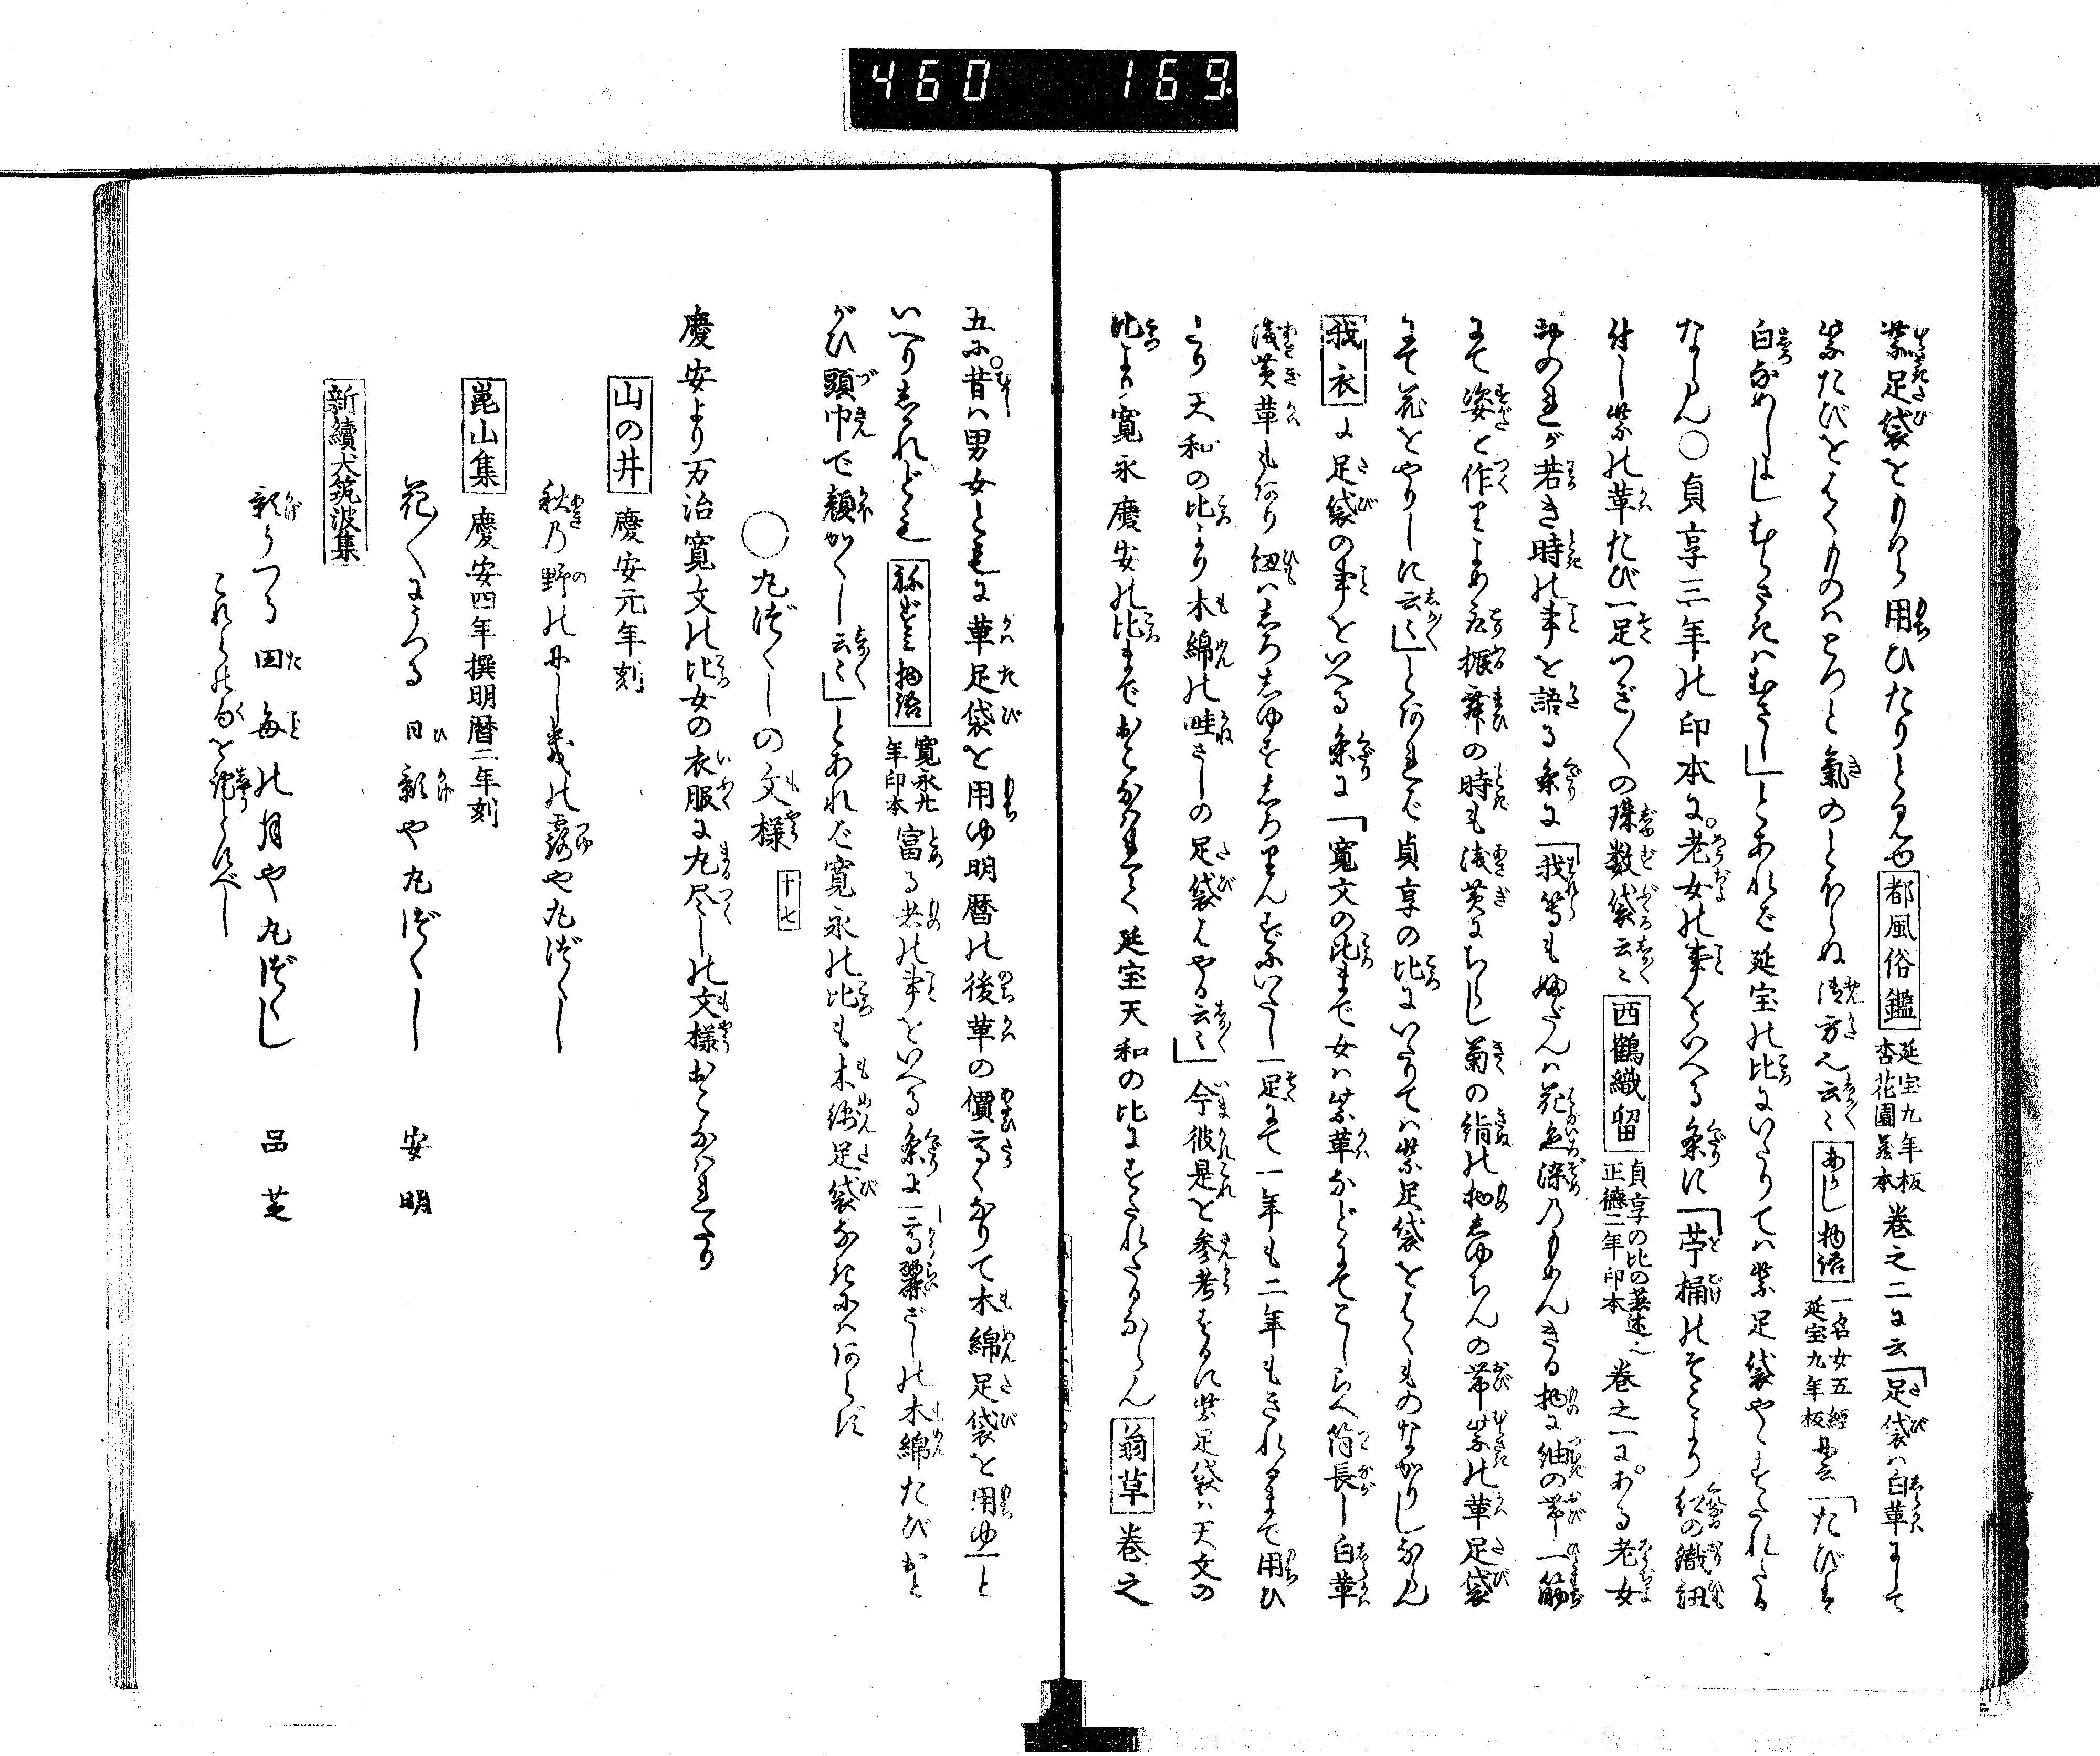 460 169
紫足袋をもはら用ひたりと見ゆ 都風俗鑑 延宝九年板 杏花園蔵本 巻之二に云「足袋は白革にして
紫たびをはくものはとつと氣のとほらぬ御方也云々 あかし物語 一名女五經 延宝九年板 に云「たびは
白なめしはよしむらさきはむさし」とあれば延宝の比にいたりては紫足袋やゝすたれたる
ならん○貞享三年の印本に老女の事をいへる条に「苧桶のそこより紅の織紐
付し紫の革たび一足つぎ〳〵の珠数袋云々 西鶴織留 貞享の比の著述也 正徳二年印本 巻之一にある老女
おのれが若き時の事を語る条に「我等も姆だんは花色染のもめんきる物に紬の帯一筋
にて姿を作りよめ取振舞の時も浅黄にちらし菊の絹の物しゆちんの帯紫の革足袋
にて花をやりしに云々」とあれば貞享の比にいたりては紫足袋をはくものなかりしならん
我衣 に足袋の事をいへる条に「寛文の比まで女は紫革などにてこしらへ筒長し白革
浅黄革もあり紐はしろしゆすしろりんずにいたし一足にて一年も二年もきれるまで用ひ
たり天和の比より木綿の畦さしの足袋はやる云々」今彼是を参考するに紫足袋は天文の
比より寛永慶安の比までおこなはれて延宝天和の比にすたれたるならん 翁草 巻之
五に昔は男女ともに革足袋を用ゆ明暦の後革の價高くなりて木綿足袋を用ゆ」と
いへりしかれども ねごと物語 寛永九 年印本 富る者の事をいへる条に「高麗ざしの木綿たびおと
がひ頭巾で顔かくし云々」とあれば寛永の比も木綿足袋なきにはあらず
○丸づくしの文様 十七
慶安より万治寛文の比女の衣服に丸尽しの文様おこなはれたり
山の井 慶安元年刻
秋の野の丹し幾の露や丸づくし
崑山集 慶安四年撰明暦二年刻
花〳〵にうつる日影や丸づくし 安明
新續犬筑波集
影うつる田毎の月や丸づくし 品芝
これらの句を証とすべし